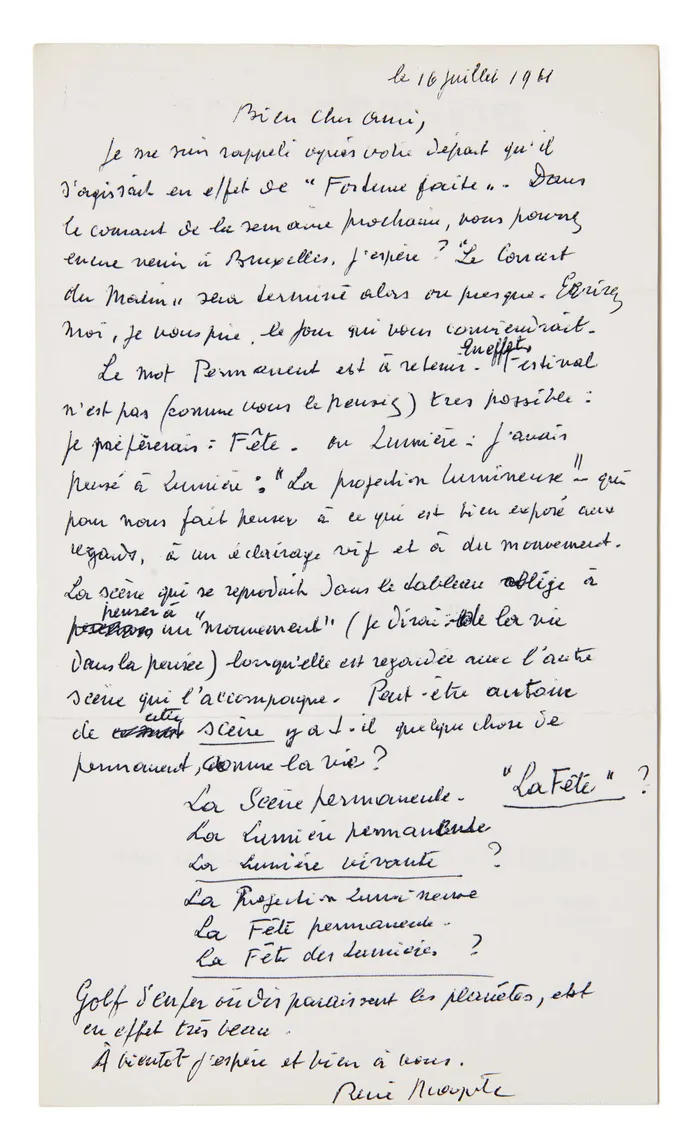 le 16 juillet 1961
Bien cher ami,
Je me suis rappelé après votre départ qu'il
s'agissait en effet de "Fortune faite". Dans
le courant de la semaine prochaine, vous pourrez
encore venir à Bruxelles, j'espère ? "Le Concert
du Matin" sera terminé alors ou presque. Ecrivez
moi, je vous prie, le jour qui vous conviendrait.
Le mot Permanent est à retenir. En effet, Festival
n'est pas (comme vous le pensiez) très possible :
je préférerais : Fête. ou Lumière : j'avais
pensé à Lumière : "La projection lumineuse" - qui
pour nous fait penser à ce qui est bien exposé aux
regards, à un éclairage vif et à du mouvement.
La scène qui se reproduit dans le tableau oblige à
penser à un "mouvement" (je dirai de la vie
dans la pensée) lorsqu'elle est regardée avec l'autre
scène qui l'accompagne. Peut-être autour
de cette scène y a t-il quelque chose de
permanent, comme la vie ?
La Scène permanente. "La Fête" ?
La Lumière permanente
La Lumière vivante ?
La Projection lumineuse
La Fête permanente.
La Fête des Lumières ?
Golf d'enfer où disparaissent les planètes, est
en effet très beau.
À bientôt j'espère et bien à vous.
René Magritte